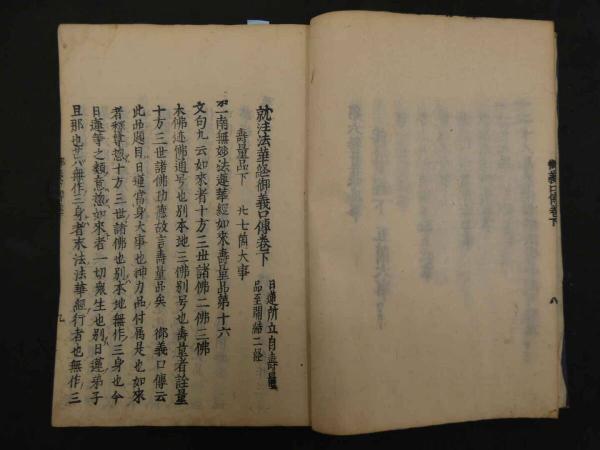 就注法華経御義口傳巻下
日蓮所立自壽量
品至開結二経
壽量品下　廾七箇大事
第一南無妙法蓮華經如來壽量品第十六
文句九云如來者十方三世諸佛二佛三佛
本佛迹佛通号也別本地三佛別号也壽量者詮量
十方三世諸佛功德故言壽量品矣　御義口傳云
此品題目日蓮當身大事也神力品付属是也如來
者釋尊惣十方三世諸佛也別本地無作三身也今
日蓮等之類意惣如來者一切衆生也別日蓮弟子
旦那也去無作三身者末法法華經行者也無作三
九
御義口傳巻下
八